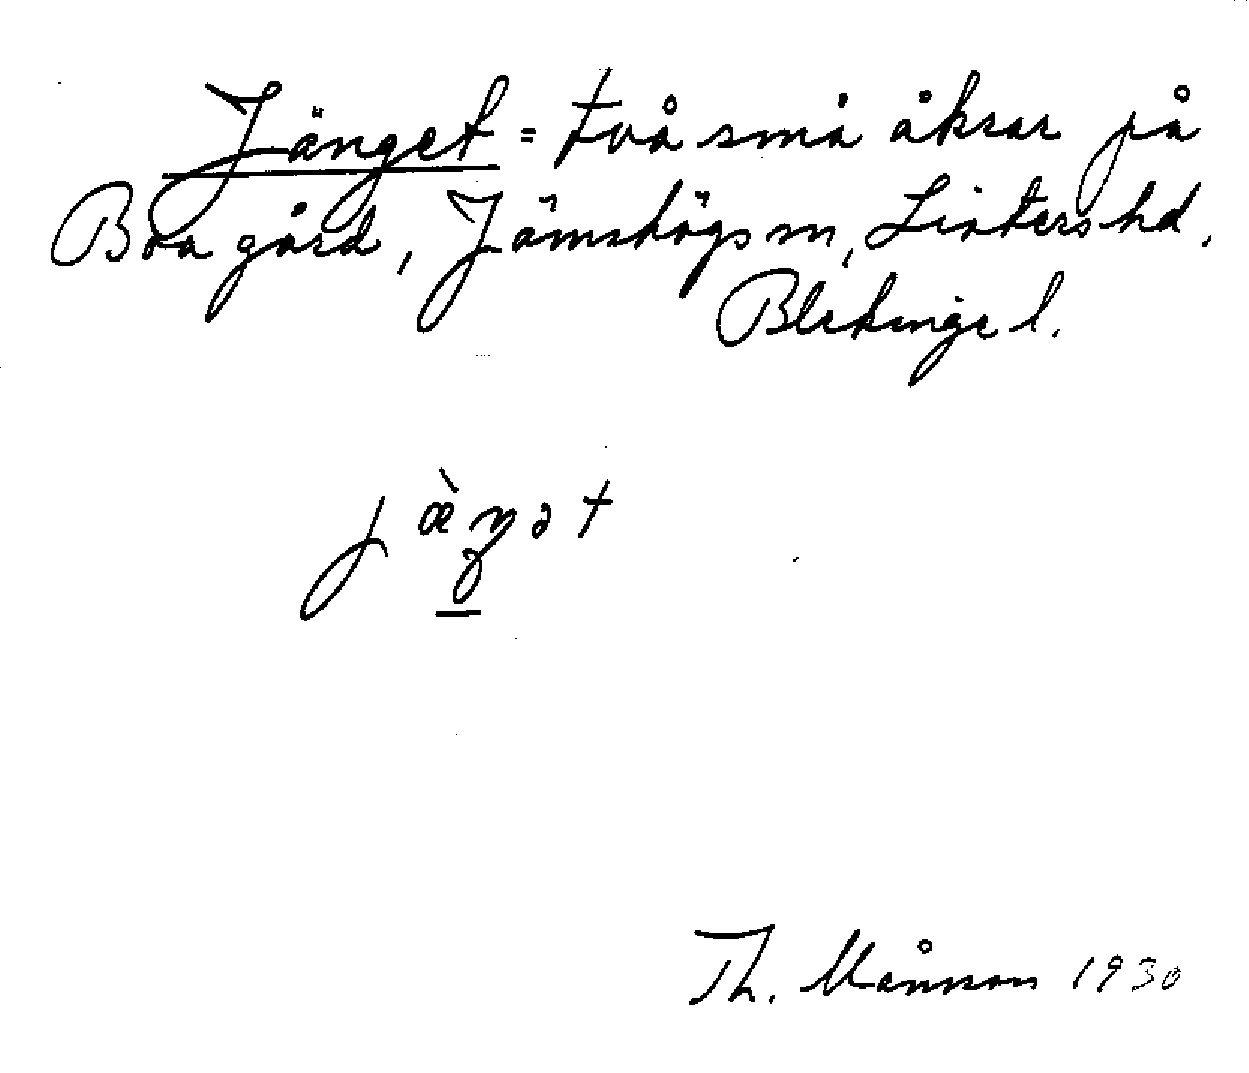 Jänget = två små åkrar på
Boa gård, Jämshögs sn, Listers hd,
Blekinge l.
jæ̀ŋət
Th. Månsson 1930